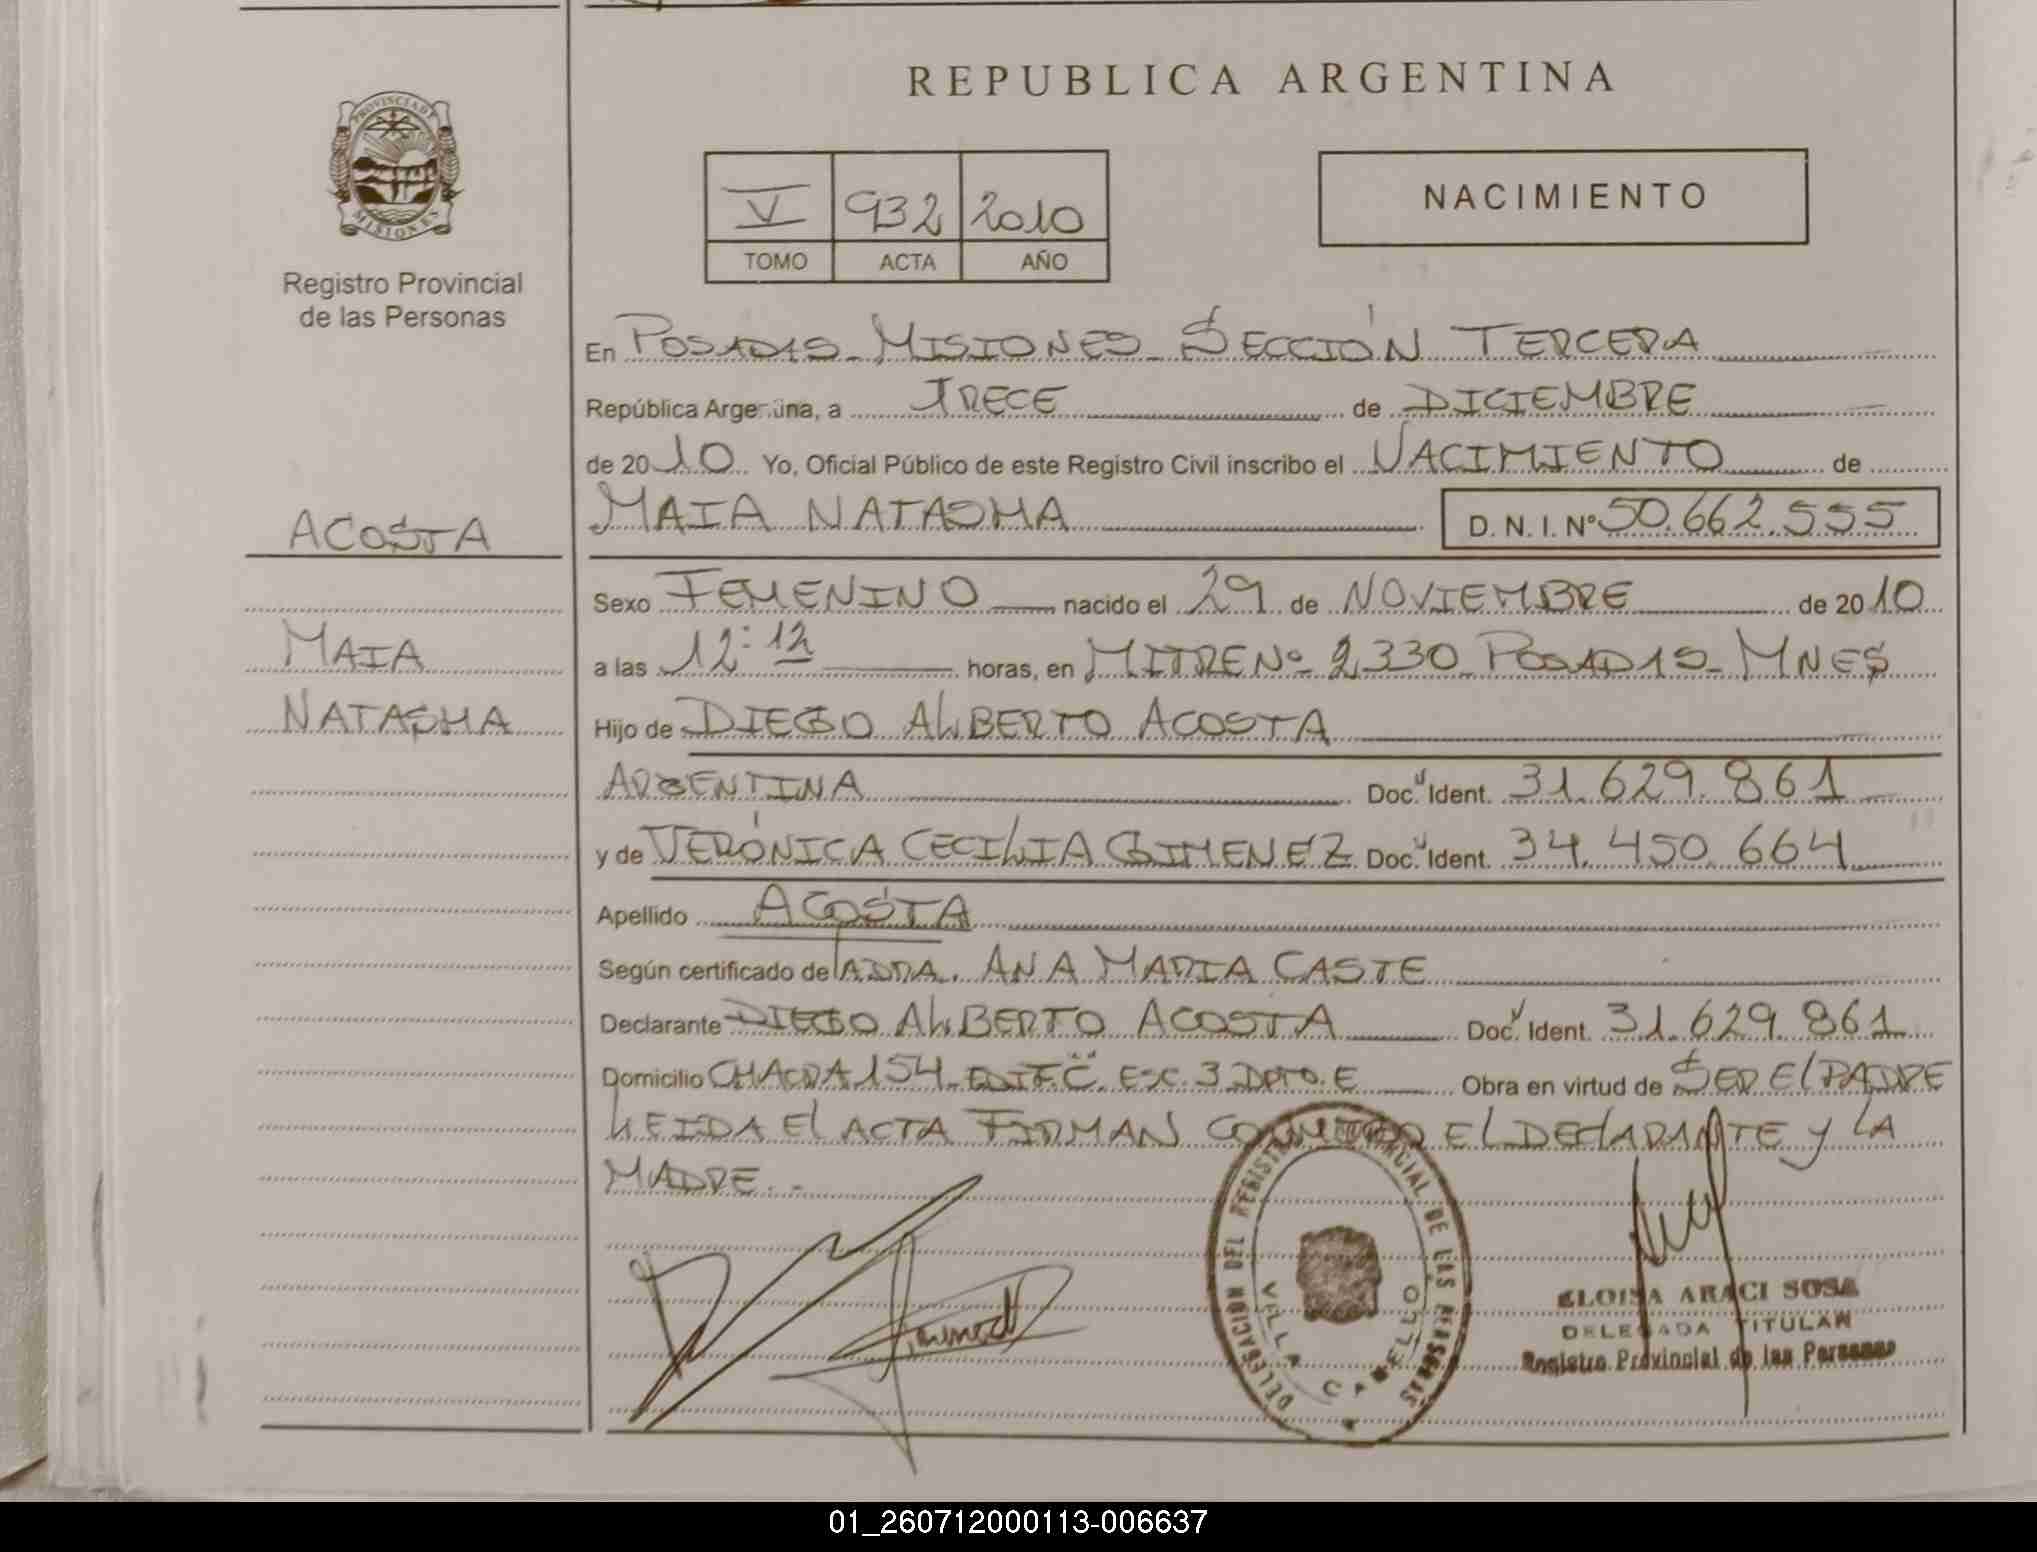 REPUBLICA ARGENTINA
PROVINCIA D MISIONES
Registro Provincial
de las Personas
V 932 2010
TOMO ACTA AÑO
NACIMIENTO
En POSADAS - MISIONES - SECCIÓN TERCERA
República Argentina, a TRECE de DICIEMBRE
de 2010 Yo, Oficial Público de este Registro Civil inscribo el NACIMIENTO de
ACOSTA
MAIA NATASHA D. N. I. Nº 50.662.555
Sexo FEMENINO nacido el 29 de NOVIEMBRE de 2010
MAIA
a las 12:12 horas, en MITRE Nº 2330 POSADAS - MNES
NATASHA
Hijo de DIEGO ALBERTO ACOSTA
ARGENTINA Doc. Ident. 31.629.861
y de VERÓNICA CECILIA GIMENEZ Doc. Ident. 34.450.664
Apellido ACOSTA
Según certificado de LA DRA. ANA MARIA CASTE
Declarante DIEGO ALBERTO ACOSTA Doc. Ident. 31.629.861
Domicilio CHACRA 154 - EDIF. C. ESC. 3 DPTO. E Obra en virtud de SER El PADRE
LEIDA El ACTA FIRMAN CONMIGO EL DECLARANTE Y LA
MADRE. -
DELEGACION DEL REGISTRO PROVINCIAL DE LAS PERSONAS
VILLA CABELLO
ELOISA ARACI SOSA
DELEGADA TITULAR
Registro Provincial de las Personas
01_260712000113-006637